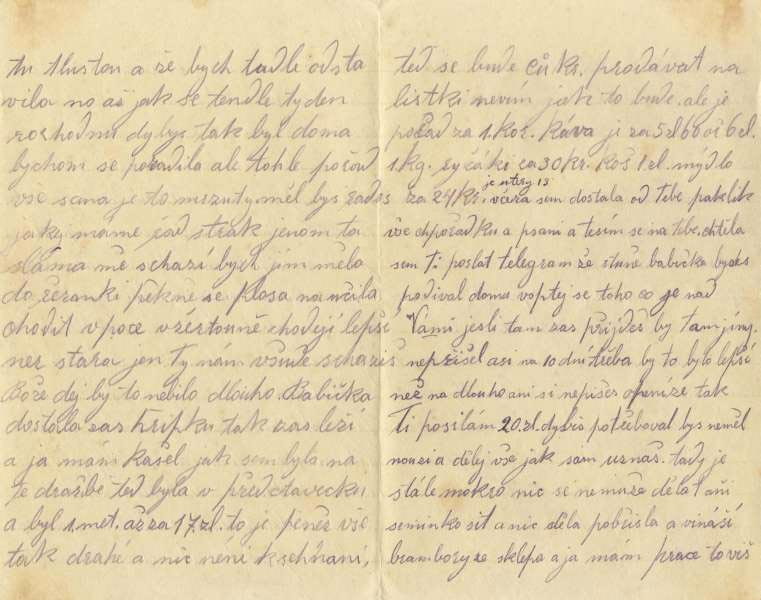 tu tluston a že bych tadle odsta
vila no až jak se tendle tyden
roshodnu dybys tak byl doma
bychom se poradila ale tohle pořad
vše sama je to mrzuty, měl bys rados
jaky mame řad strak jenom ta
slama mě schazí bych jim měla
do řezanki pěkně se Klosa naučila
chodit v poce vžertouně chodějí lepší
nez stara jen Ty nám všude schaziš
Bože dej by to nebilo dlouho. Babička
dostala zas hripku tak zas leží
a ja mám kašel jak sem byla na
te dražbě ted byla v představecku
a byl 1. met. až za 17 zl. to je peněz vše
tak drahé a nic není k sehňaní,
teď se bude cůkr. prodávat na
listki nevím jak to bude. ale je
pořad za 1. kor. káva je za 5 zl 60 až 6 zl.
1 kg. syčáki za 30 kr. koš 1 zl. mýdlo
za 24 kr. včera sem dostala od Tebe pakelik
je utery 13
vše v pořadku a psani a tesím se na tebe, chtěla
sem Ti poslat telegram že stuně babička bydes
podival domu voptej se toho co je nad
Vami jesli tam zas prijdeš by tam jiny.
nepřišel asi na 10 dní třeba by to bylo lepší
než na dlouho ani si nepišeš o penize tak
Ti posilám 20. zl. dybis potřeboval bys neměl
nouzi a dělej vše jak sam uznáš. tady je
stále mokro nic se nemuže dělat ani
seminko sit a nic děla pobejsla a vináší
brambory ze sklepa a ja mám prace to viš